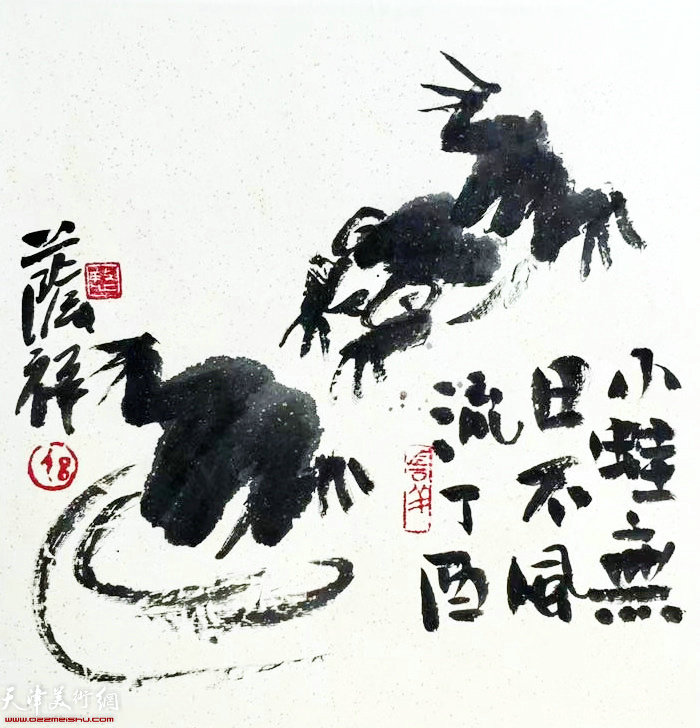 小蛙無
日不風
流丁酉
蔭祥
天津美術網
www.022meishu.com